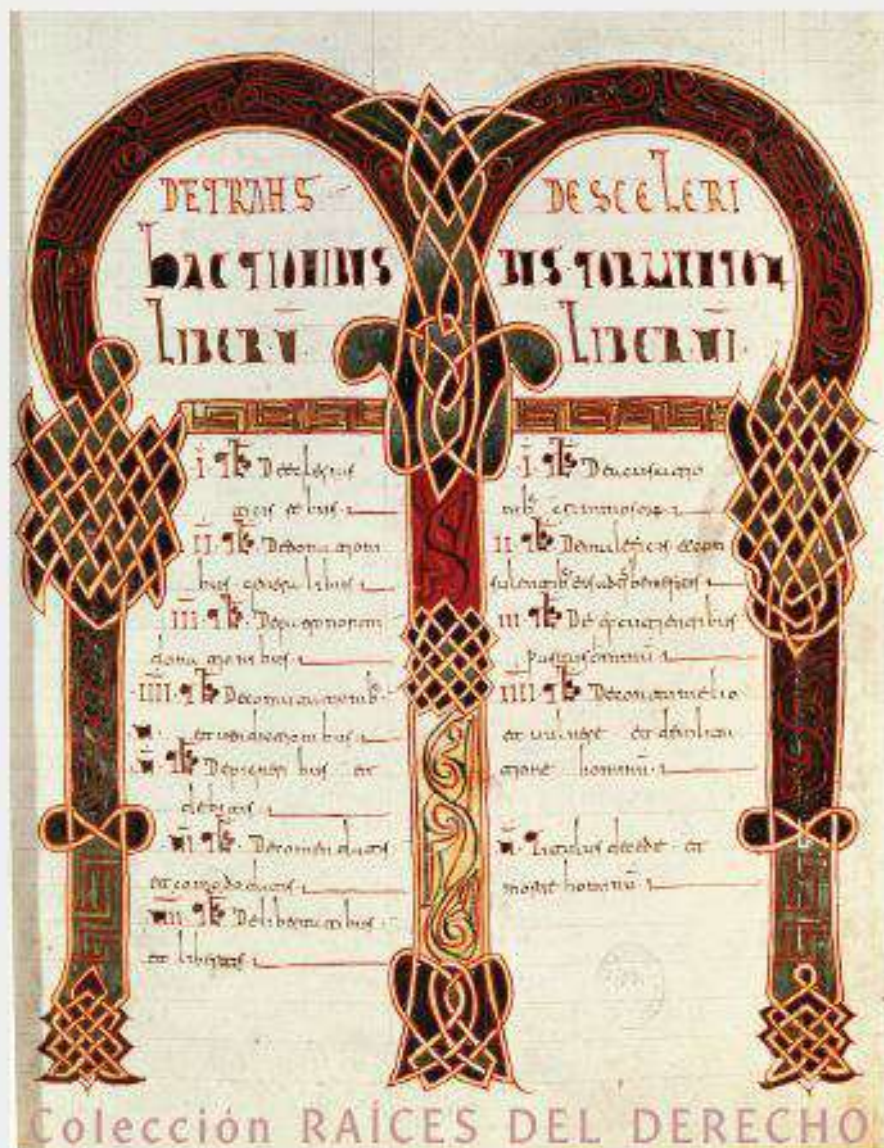 DETRANS
BACTIONIBUS
LIBER V.
I. Tt. De eclesias
ticis rebus
II. Tt. De donationi
bus generalibus
III. Tt. De patronorum
donationibus
IIII. Tt. De comutationib
et venditionibus
V. Tt. De pigneribus et
debitis
VI. Tt. De comendatis
et comodatis
VII. Tt. De libertatibus
et libertis
DE SCELERI
BUS TORMENTOR
LIBER VI.
I. Tt. De accusatio
nib criminosor
II. Tt. De maleficis et con
III. Tt. De excutientibus
partus hominu
IIII. Tt. De contumelio
et vulnere et debilitati
one hominu
V. Titulus de cede et
morte hominu
Colección RAÍCES DEL DERECHO